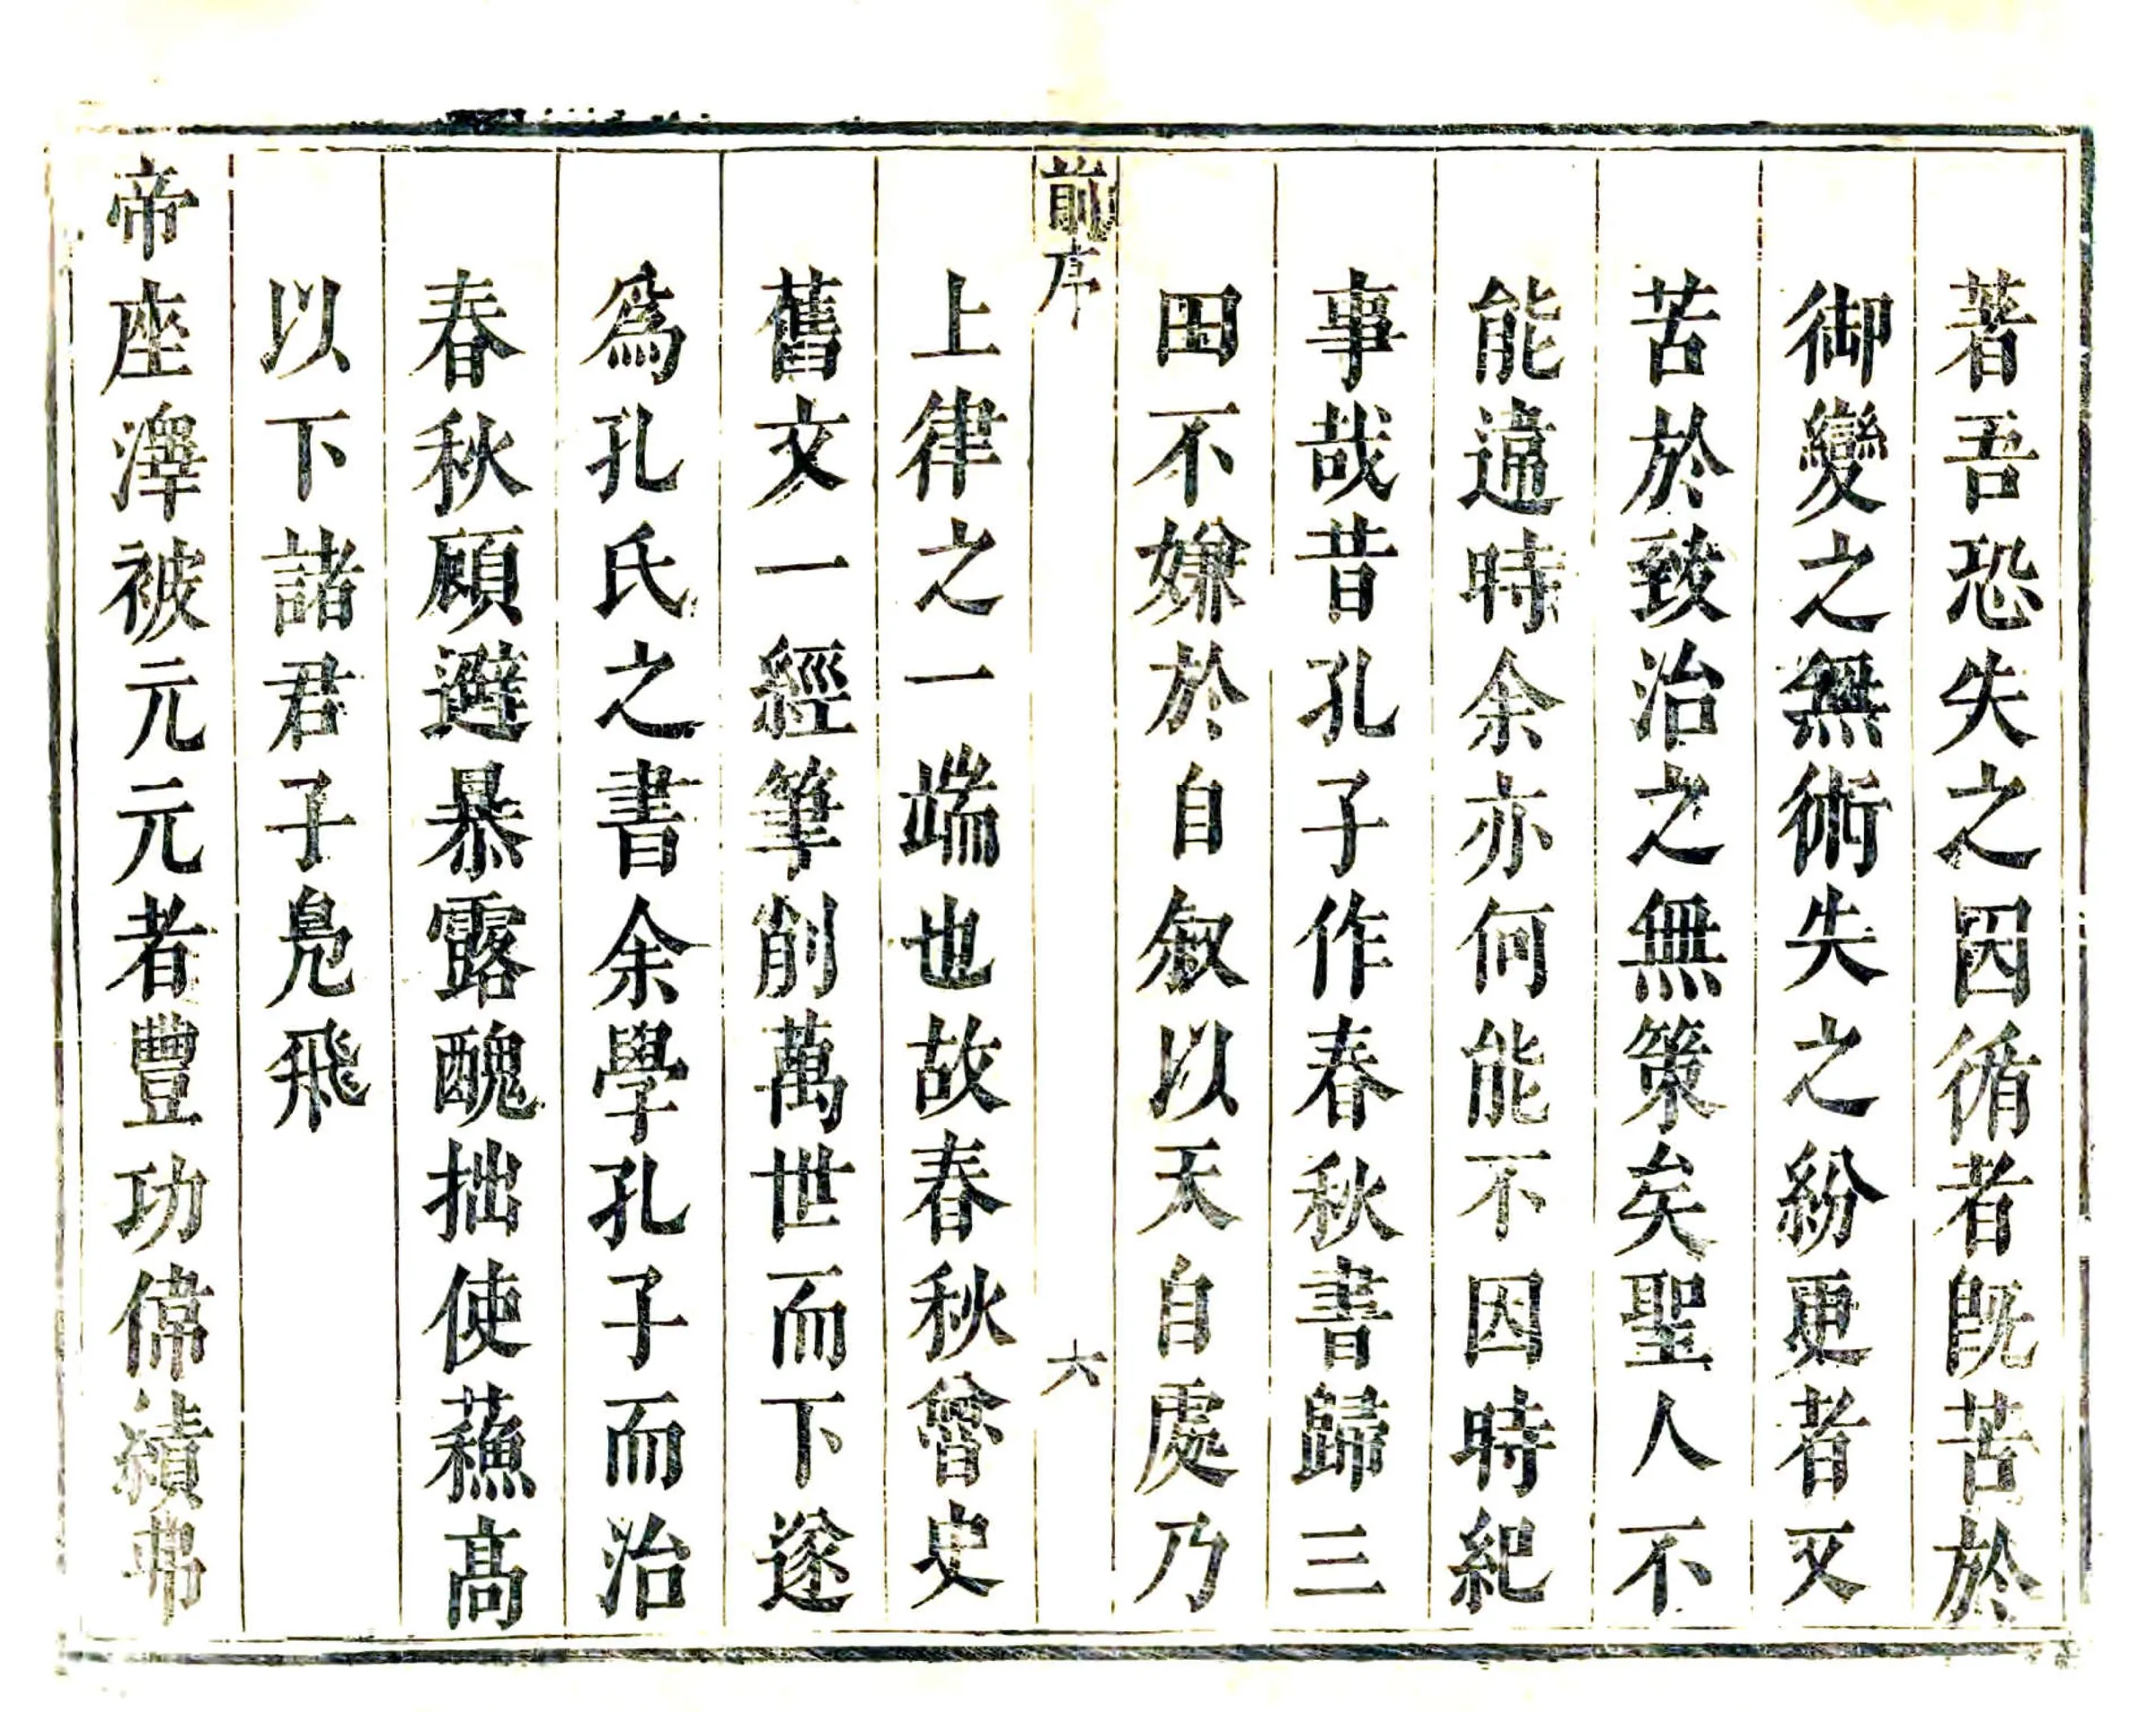 著吾恐失之因循者旣苦於
御變之無術失之紛更者又
苦於致治之無策矣聖人不
能違時余亦何能不因時紀
事哉昔孔子作春秋書歸三
田不嫌於自叙以天自處乃
前序
六
上律之一端也故春秋曾史
舊文一經筆削萬世而下遂
爲孔氏之書余學孔子而治
春秋顧避暴露醜拙使蘓髙
以下諸君子鳬飛
帝座澤被元元者豐功偉績弗